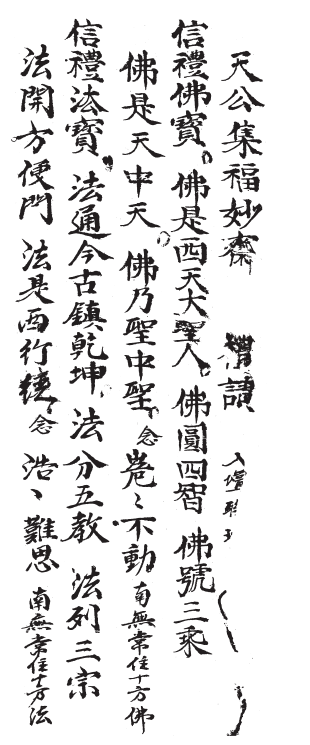 天公集福妙齋 禮請 入壇
信禮佛寶 佛是西天大聖人 佛圓四智 佛號三乘
佛是天中天 佛乃聖中聖 念 巍〻不動 南無常住十方佛
信禮法寶 法通今古鎮乾坤 法分五教 法列三宗
法開方便門 法是西行 念 浩〻難思 南無常住十方法